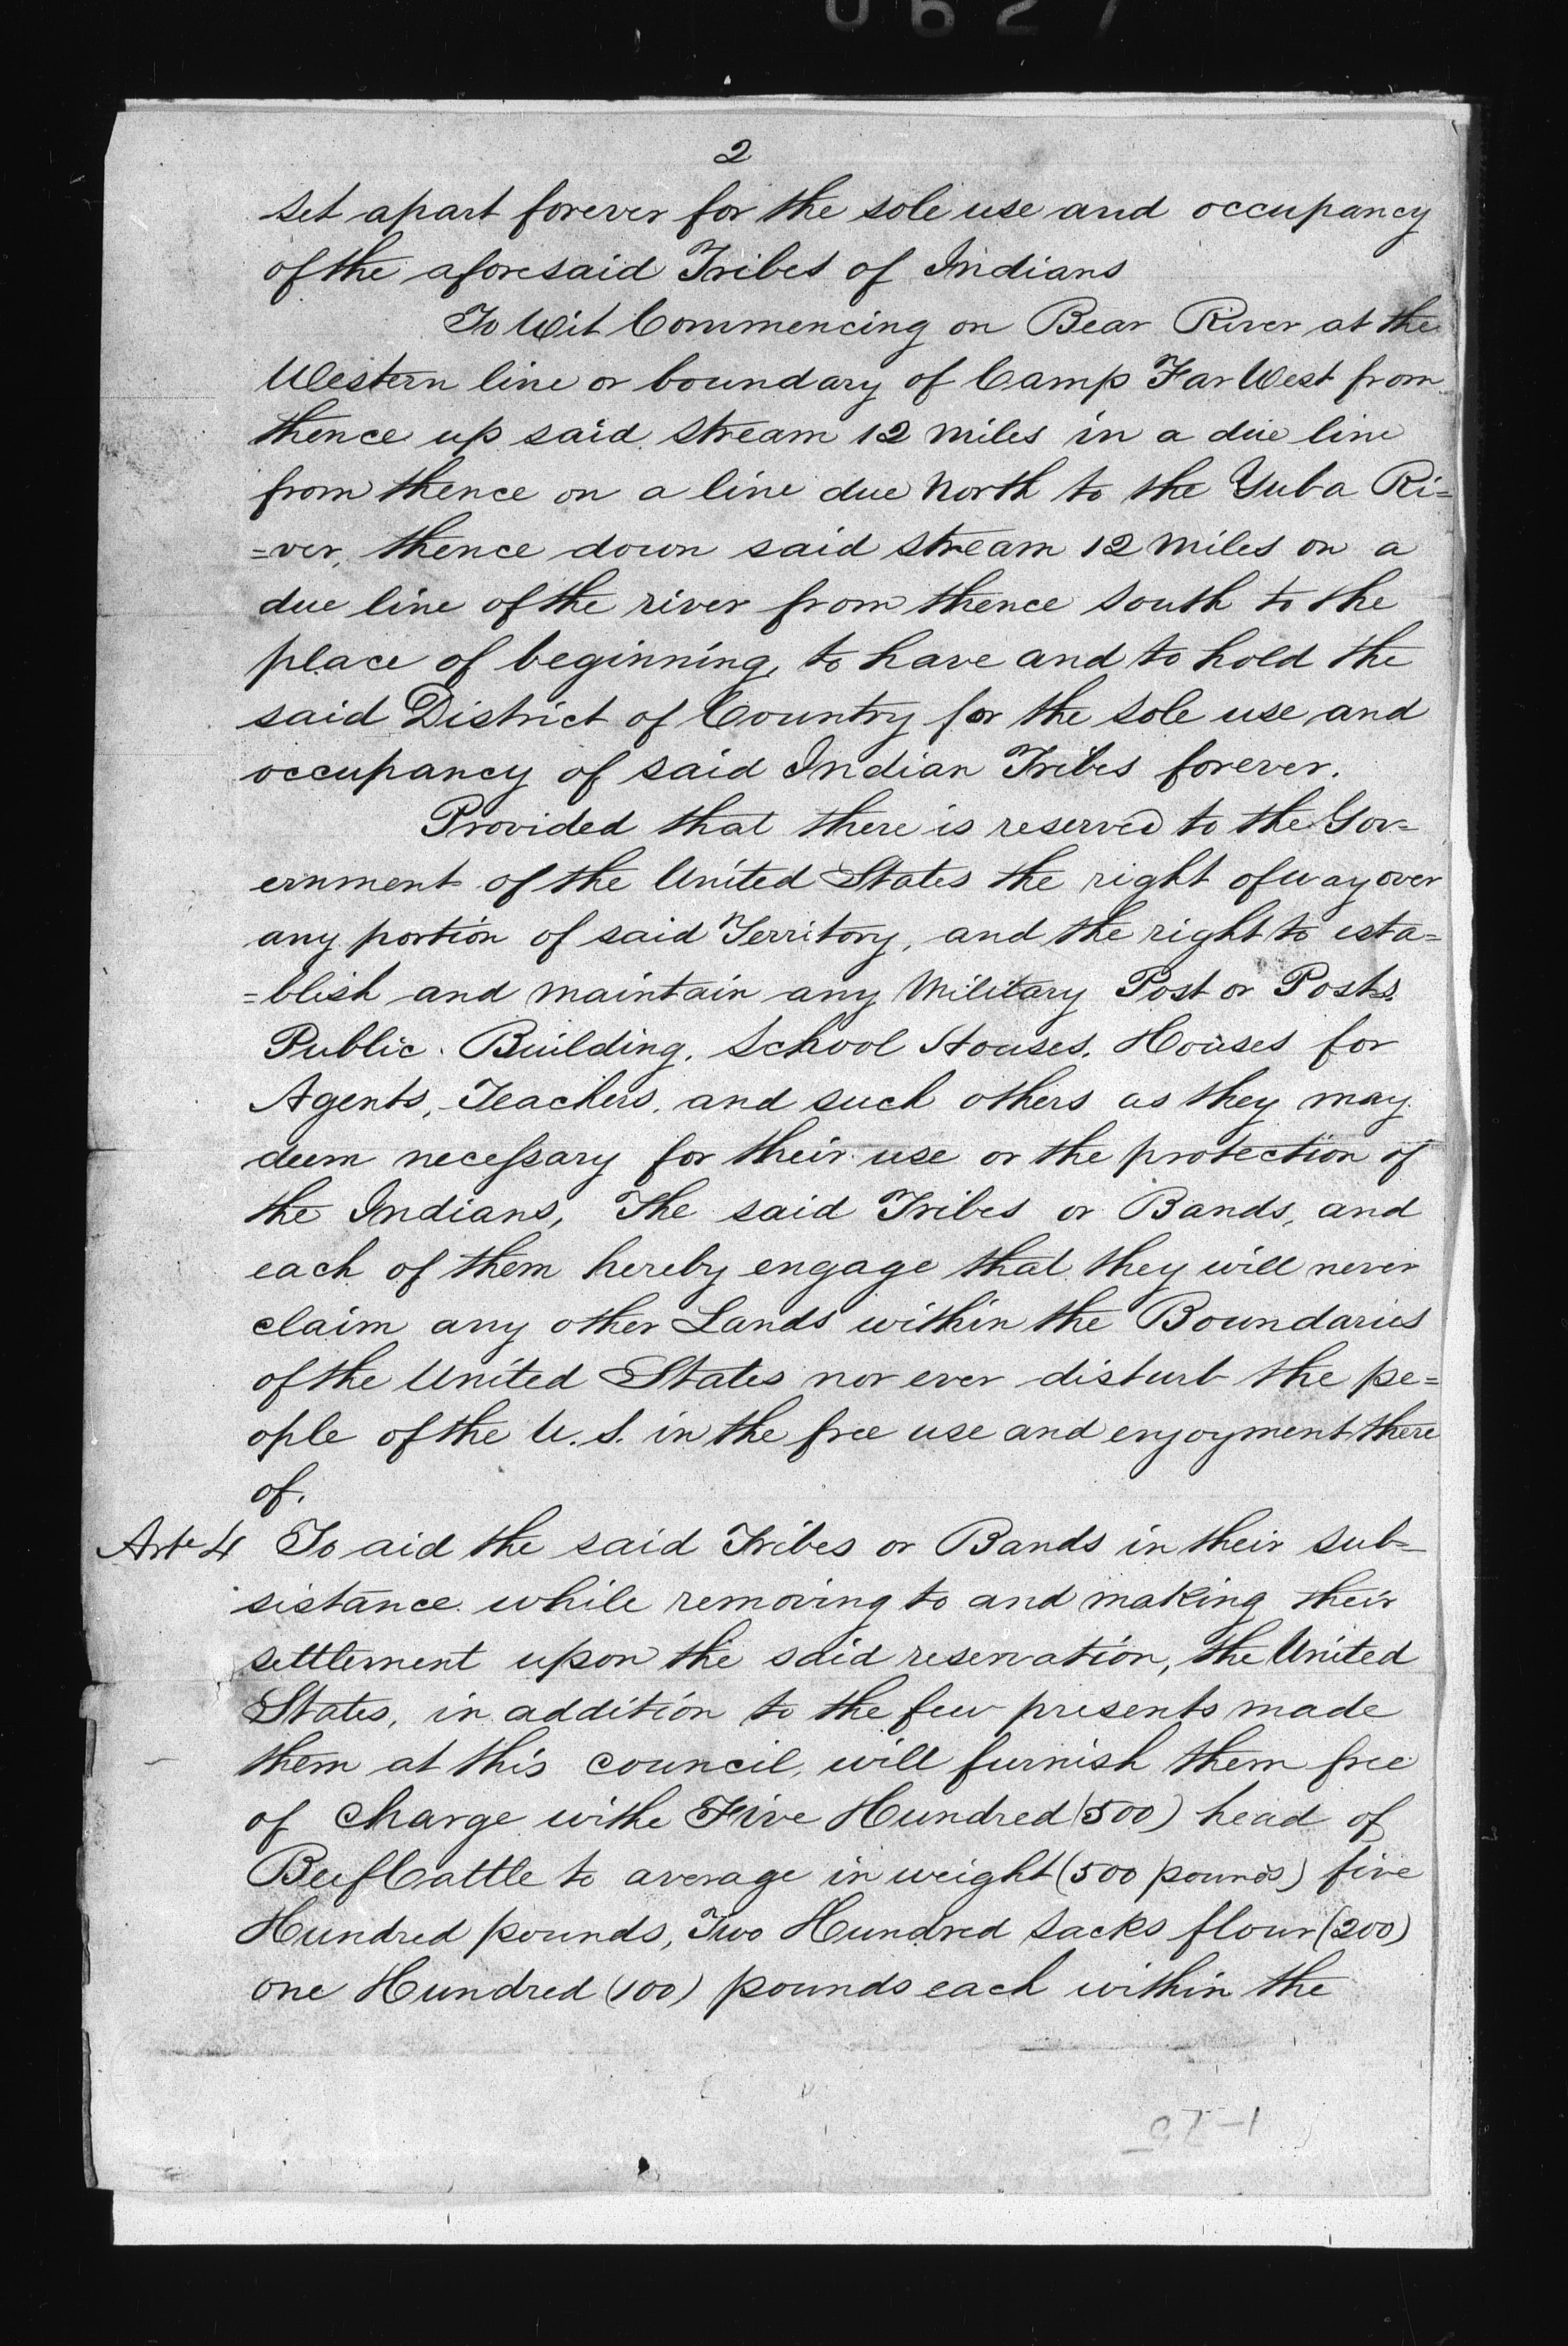 0627
2
set apart forever for the sole use and occupancy
of the aforesaid Tribes of Indians
To Wit Commencing on Bear River at the
Western line or boundary of Camp Far West from
thence up said stream 12 miles in a due line
from thence on a line due North to the Yuba Ri=
=ver, thence down said stream 12 miles on a
due line of the river from thence South to the
place of beginning, to have and to hold the
said District of Country for the sole use and
occupancy of said Indian Tribes forever.
Provided that there is reserved to the Gov=
ernment of the United States the right of way over
any portion of said Territory, and the right to esta=
=blish and maintain any Military Post or Posts.
Public Building, School Houses, Houses for
Agents, Teachers, and such others as they may
deem necessary for their use or the protection of
the Indians, The said Tribes or Bands, and
each of them hereby engage that they will never
claim any other Lands within the Boundaries
of the United States nor ever disturb the pe=
ople of the U.S. in the free use and enjoyment there
of.
Arte 4 To aid the said Tribes or Bands in their sub=
sistance while removing to and making their
settlement upon the said reservation, the United
States, in addition to the few presents made
them at this council, will furnish them free
of charge withe Five Hundred (500) head of
Beef Cattle to average in weight (500 pounds) five
Hundred pounds, Two Hundred sacks flour (200)
one Hundred (100) pounds each within the